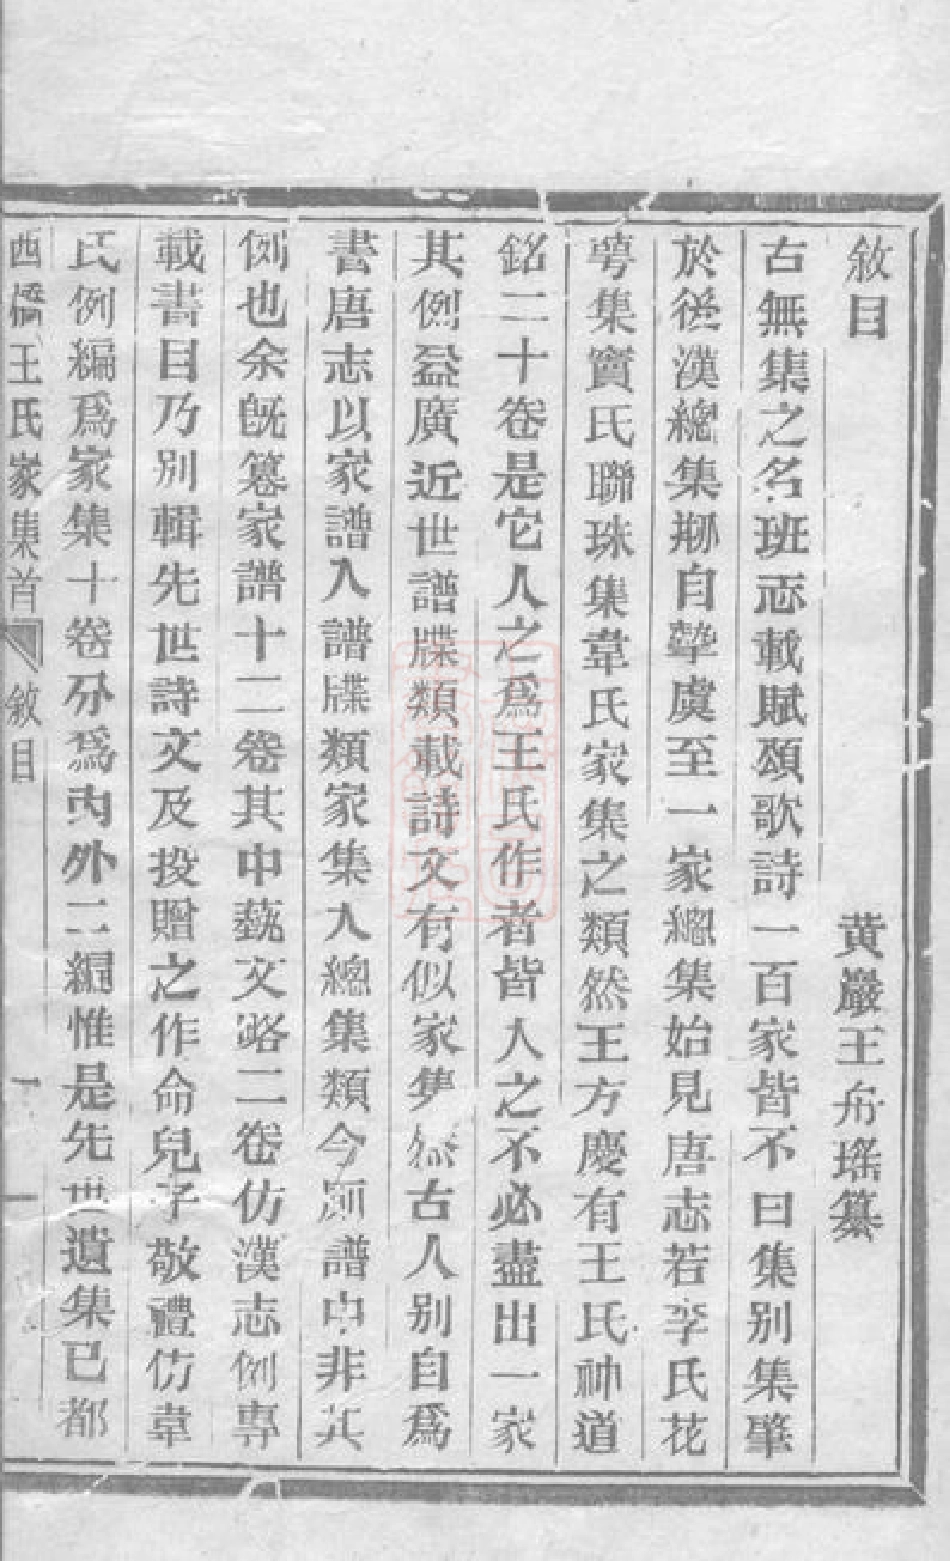 敘目
黃巖王舟瑤纂
古無集之名班志載賦頌歌詩一百家皆不曰集别集肇
於後漢總集剏自摯虞至一家總集始見唐志若李氏花
萼集竇氏聯珠集韋氏家集之類然王方慶有王氏神道
銘二十卷是它人之爲王氏作者皆入之不必盡出一家
其例益廣近世譜牒類載詩文有似家集然古人别自爲
書唐志以家譜入譜牒類家集入總集類今廁譜中非其
例也余旣纂家譜十二卷其中藝文略二卷仿漢志例專
載書目乃别輯先世詩文及投贈之作命兒子敬禮仿韋
氏例編爲家集十卷分爲內外二編惟是先世遺集已都
西橋王氏家集首 敘目 一